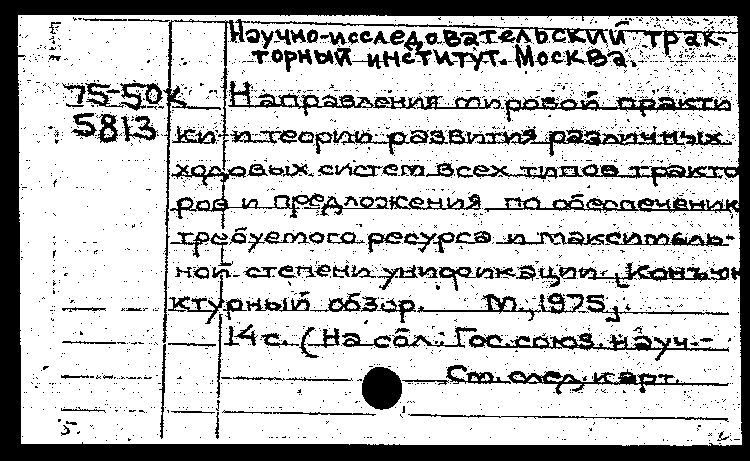 Научно-исследовательский трак-
торный институт. Москва.
75-50к Направления мировой практи
5813 ки и теории развития различных
ходовых систем всех типов тракто
ров и предложения по обеспеченик
требуемого ресурса и максималь-
ной степени унификации. [Конъюн
ктурный обзор. М., 1975].
14 с. (На обл.: Гос. союз. науч.-
См. след. карт.
5.